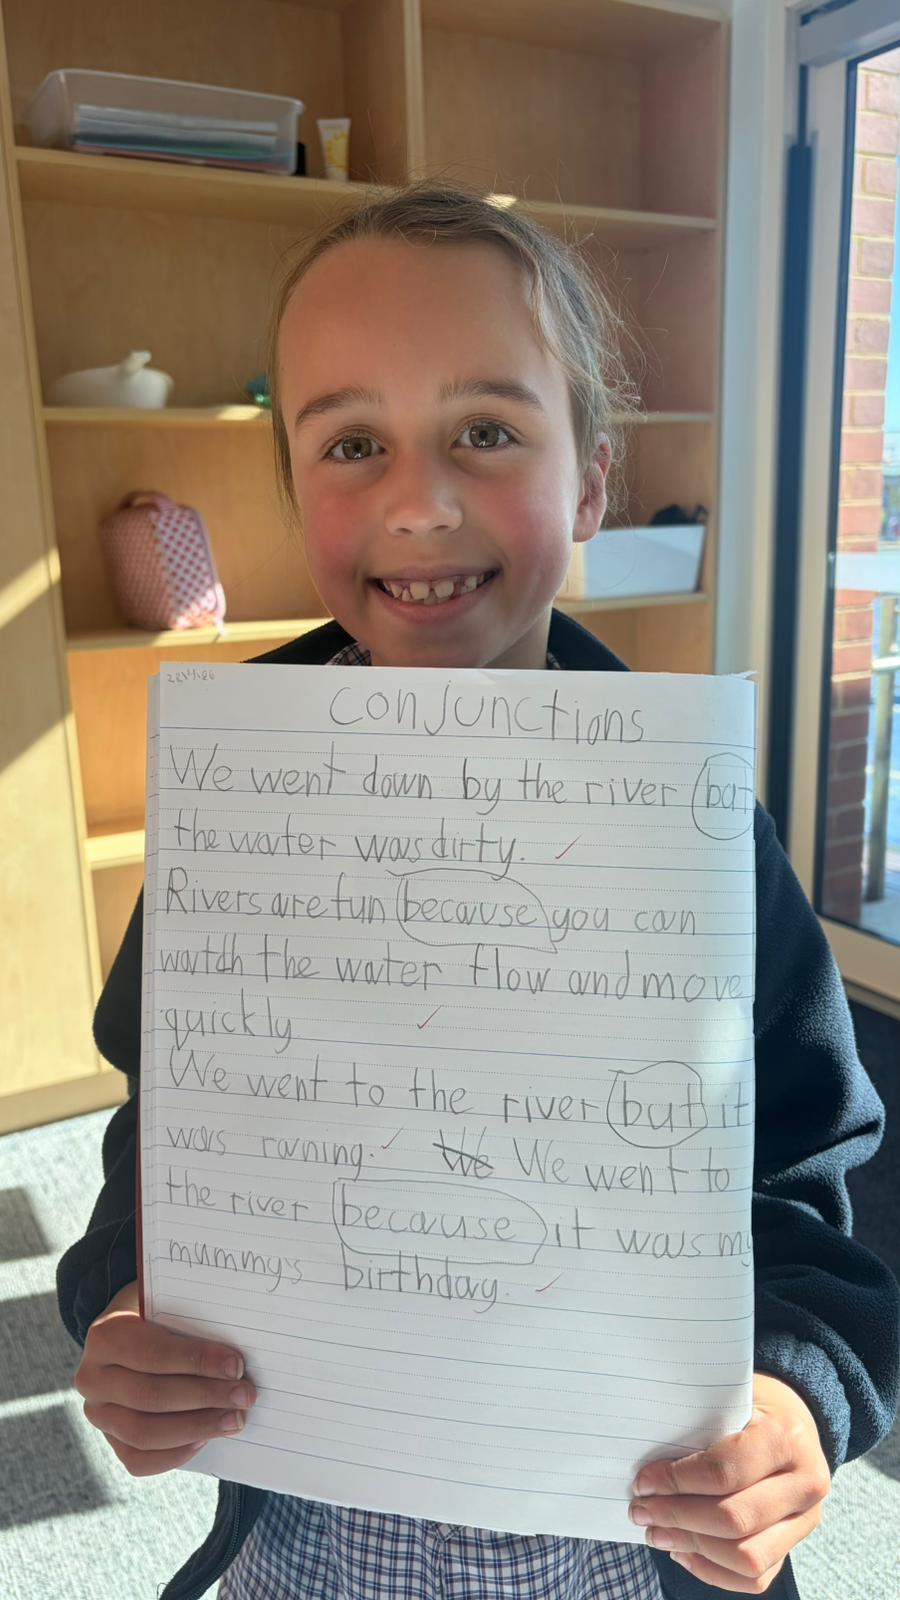 22.4.26
Conjunctions
We went down by the river but
the water was dirty.
Rivers are fun because you can
watch the water flow and move
quickly
We went to the river but it
was raning. We We went to
the river because it was my
mummy's birthday.